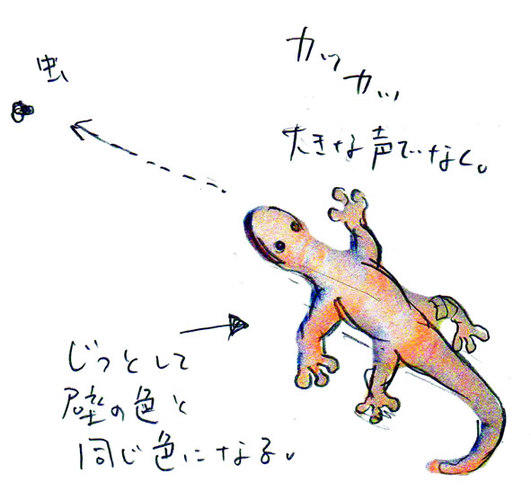 カッ
カッ
大きな声でなく。
虫
じっとして
壁の色と
同じ色になる。